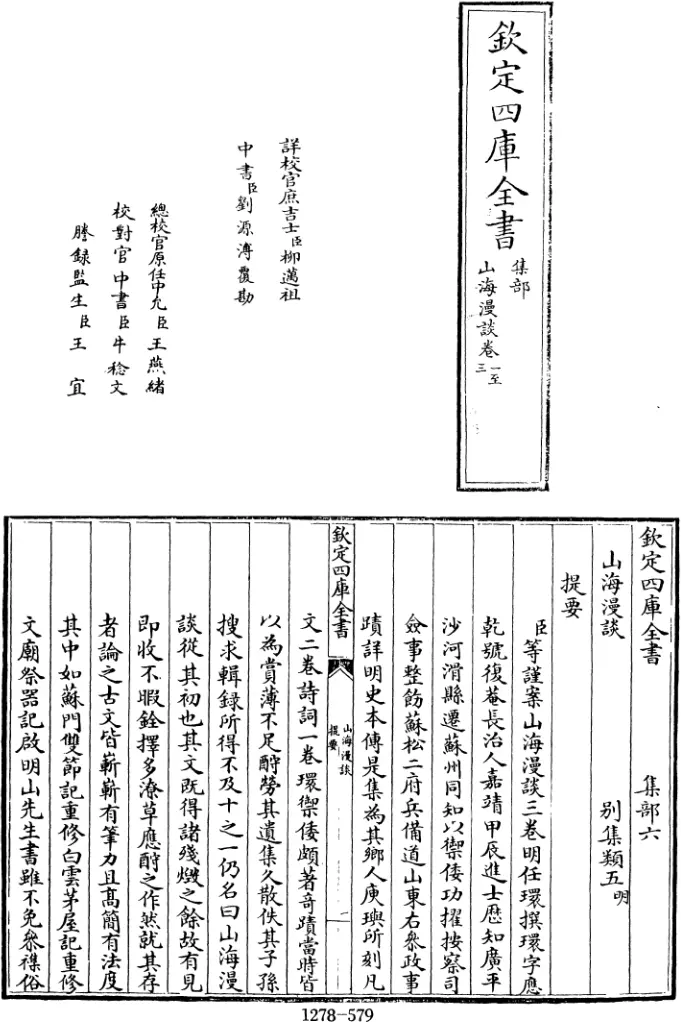 欽定四庫全書
集部
山海漫談卷一至三
詳校官庶吉士臣柳邁祖
中書臣劉源溥覆勘
總校官原任中允臣王燕緒
校對官中書臣牛稔文
謄錄監生臣王宜
欽定四庫全書 集部六
山海漫談 別集類五明
提要
臣等謹案山海漫談三卷明任環撰環字應
乾號復菴長治人嘉靖甲辰進士歷知廣平
沙河滑縣遷蘇州同知以禦倭功擢按察司
僉事整飭蘇松二府兵備道山東右叅政事
蹟詳明史本傳是集為其鄉人庾璵所刻凡
欽定四庫全書
山海漫談
提要
二
文二卷詩詞一卷環禦倭頗著竒蹟當時皆
以為賞薄不足酧勞其遺集久散佚其子孫
搜求輯録所得不及十之一仍名曰山海漫
談從其初也其文既得諸殘燬之餘故有見
即收不暇銓擇多潦草應酧之作然就其存
者論之古文皆嶄嶄有筆力且髙簡有法度
其中如蘇門雙節記重修白雲茅屋記重修
文廟祭器記啟明山先生書雖不免叅襍俗
1278-579